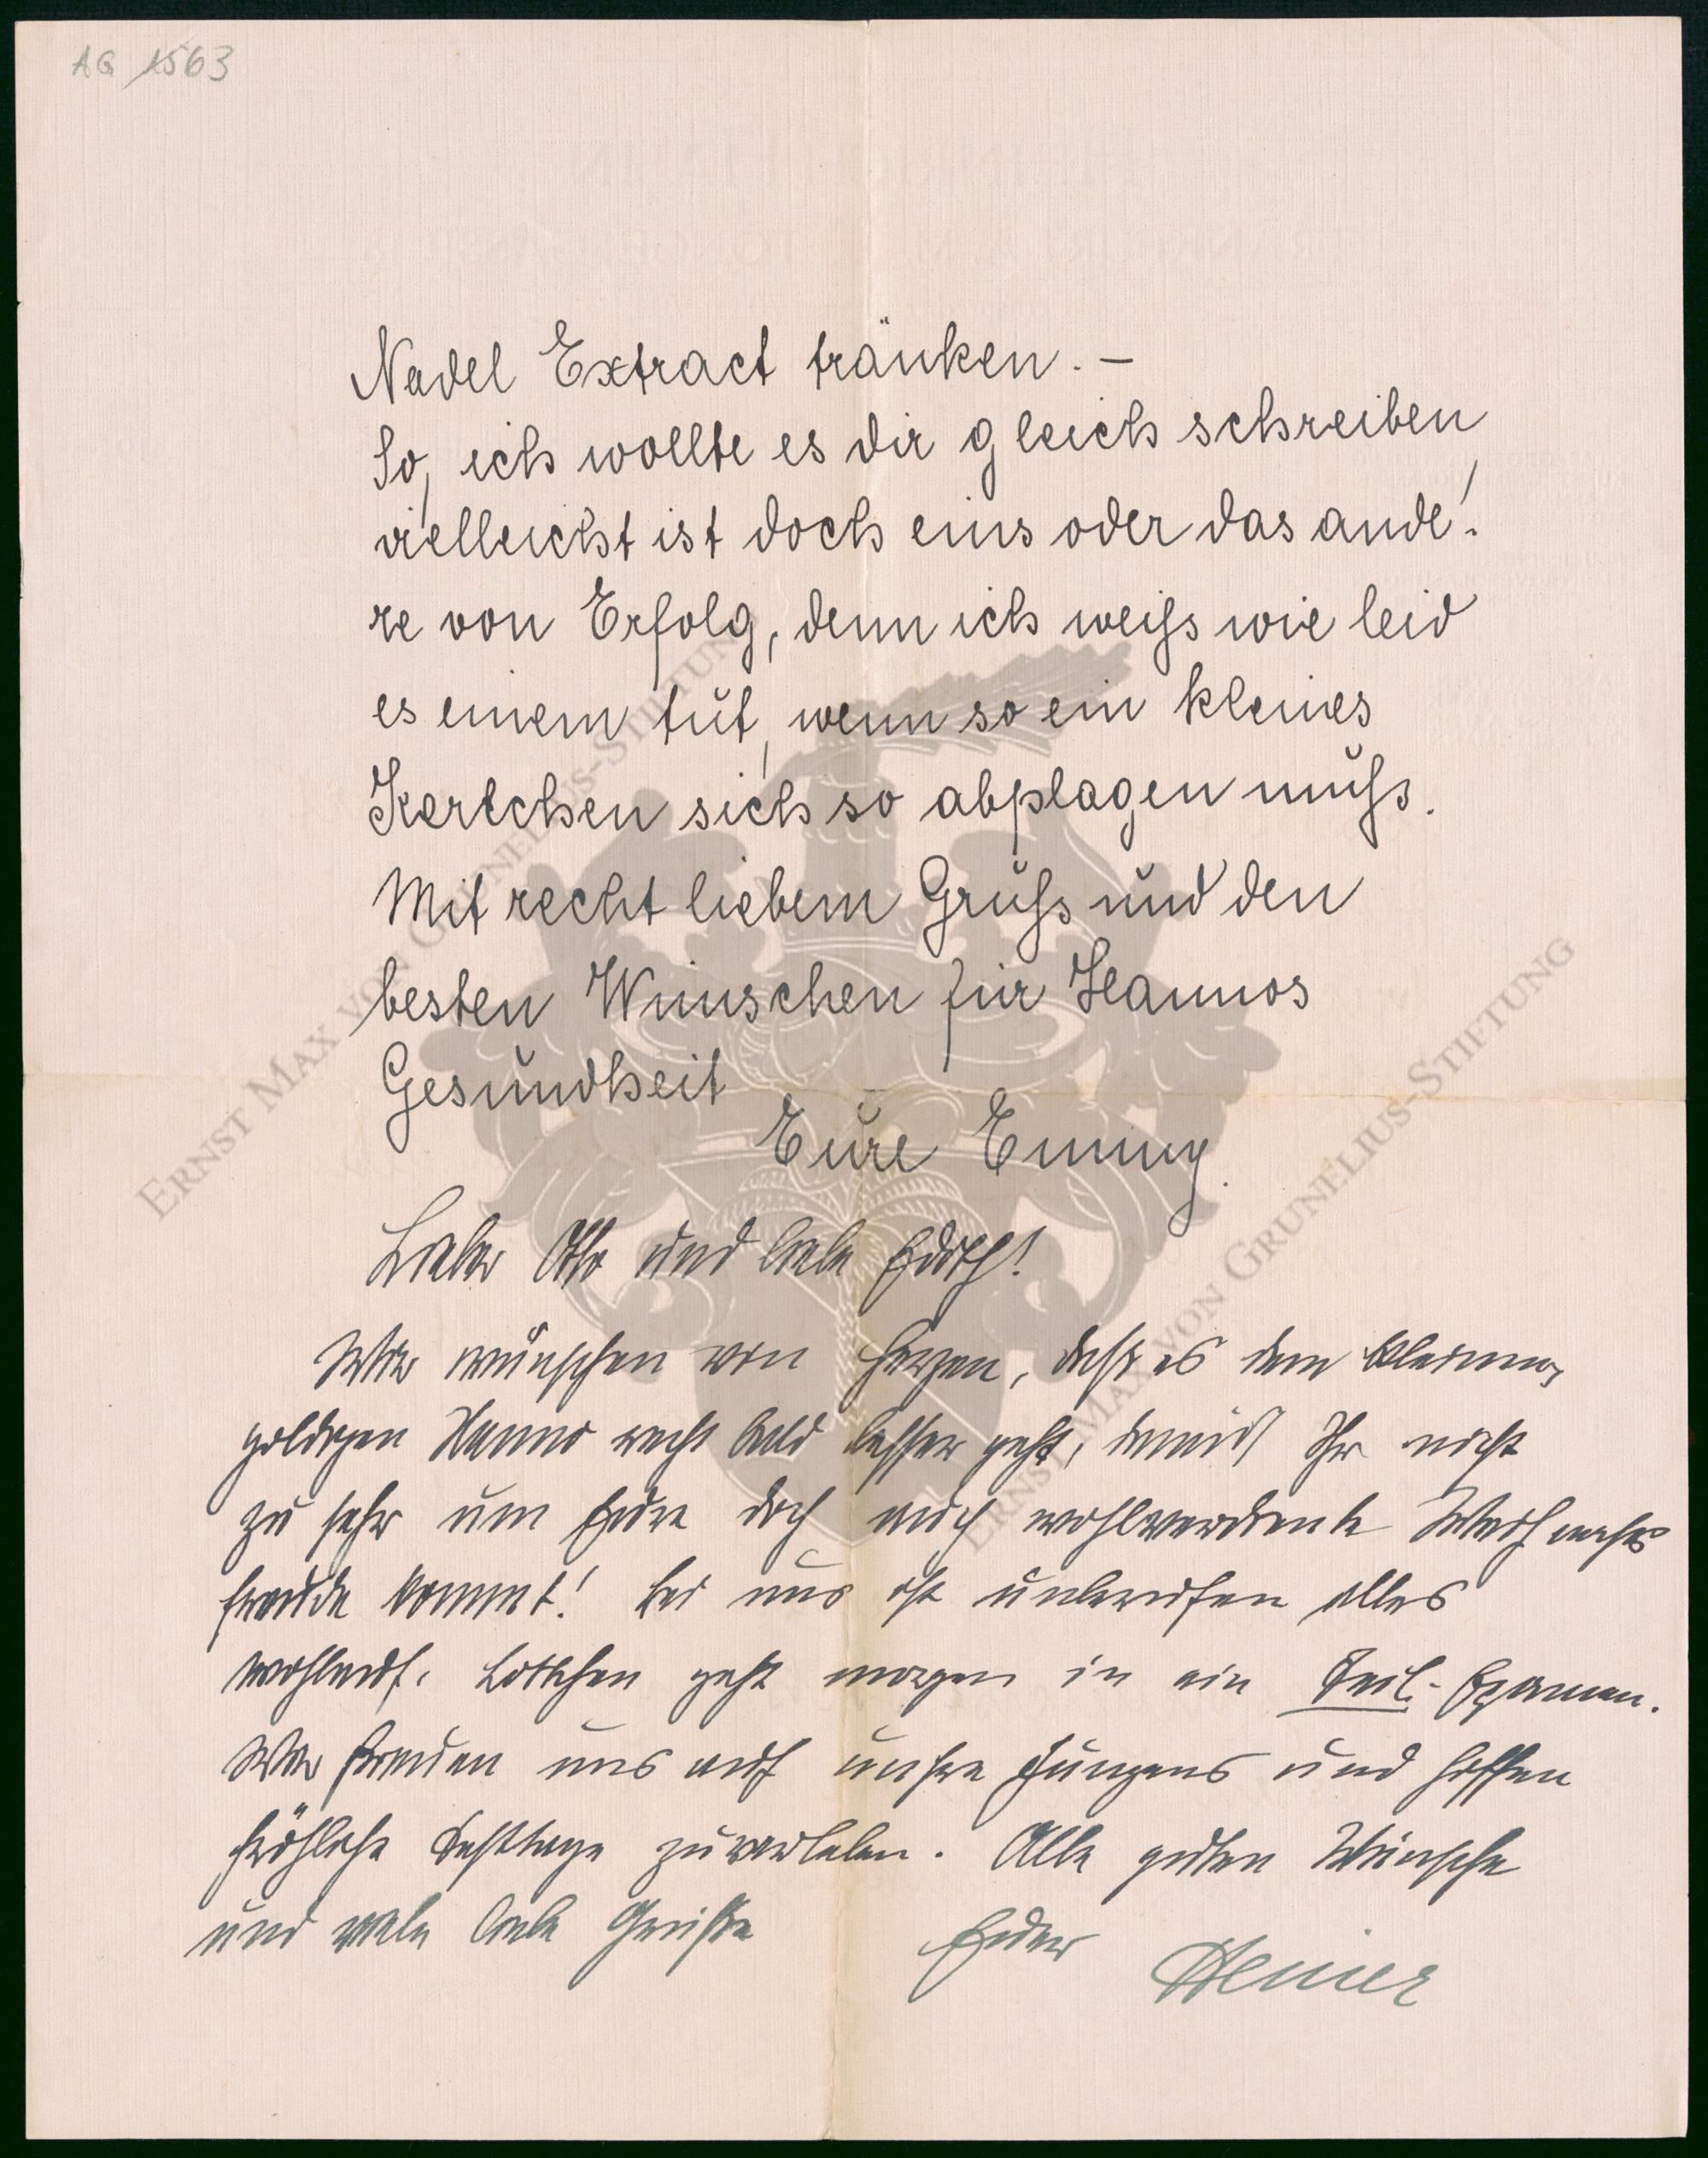 AG 1563
Nadel Extract tränken. –
So, ich wollte es dir gleich schreiben,
vielleicht ist doch eins oder das ande!
re von Erfolg, denn ich weiss wie leid
es einem tut, wenn so ein kleines
Kerlchen sich so abplagen muss.
Mit recht liebem Gruss und den
besten Wünschen für Hannos
Gesundheit
Eure Emmy.
Lieber Otto und liebe Edith!
Wir wünschen von Herzen, dass es dem kleinen,
goldigen Hanno recht bald besser geht, damit Ihr nicht
zu sehr um Eure doch auch wohlverdiente Weihnachts
freude kommt! Bei uns ist unberufen alles
wohlauf. Lottchen geht morgen in ein Teil-Examen.
Wir freuen uns auf unsre Jungens und hoffen
fröhliche Festtage zu verleben. Alle guten Wünsche
und viele liebe Grüsse
Euer Heiner
ERNST MAX VON GRUNELIUS-STIFTUNG
ERNST MAX VON GRUNELIUS-STIFTUNG